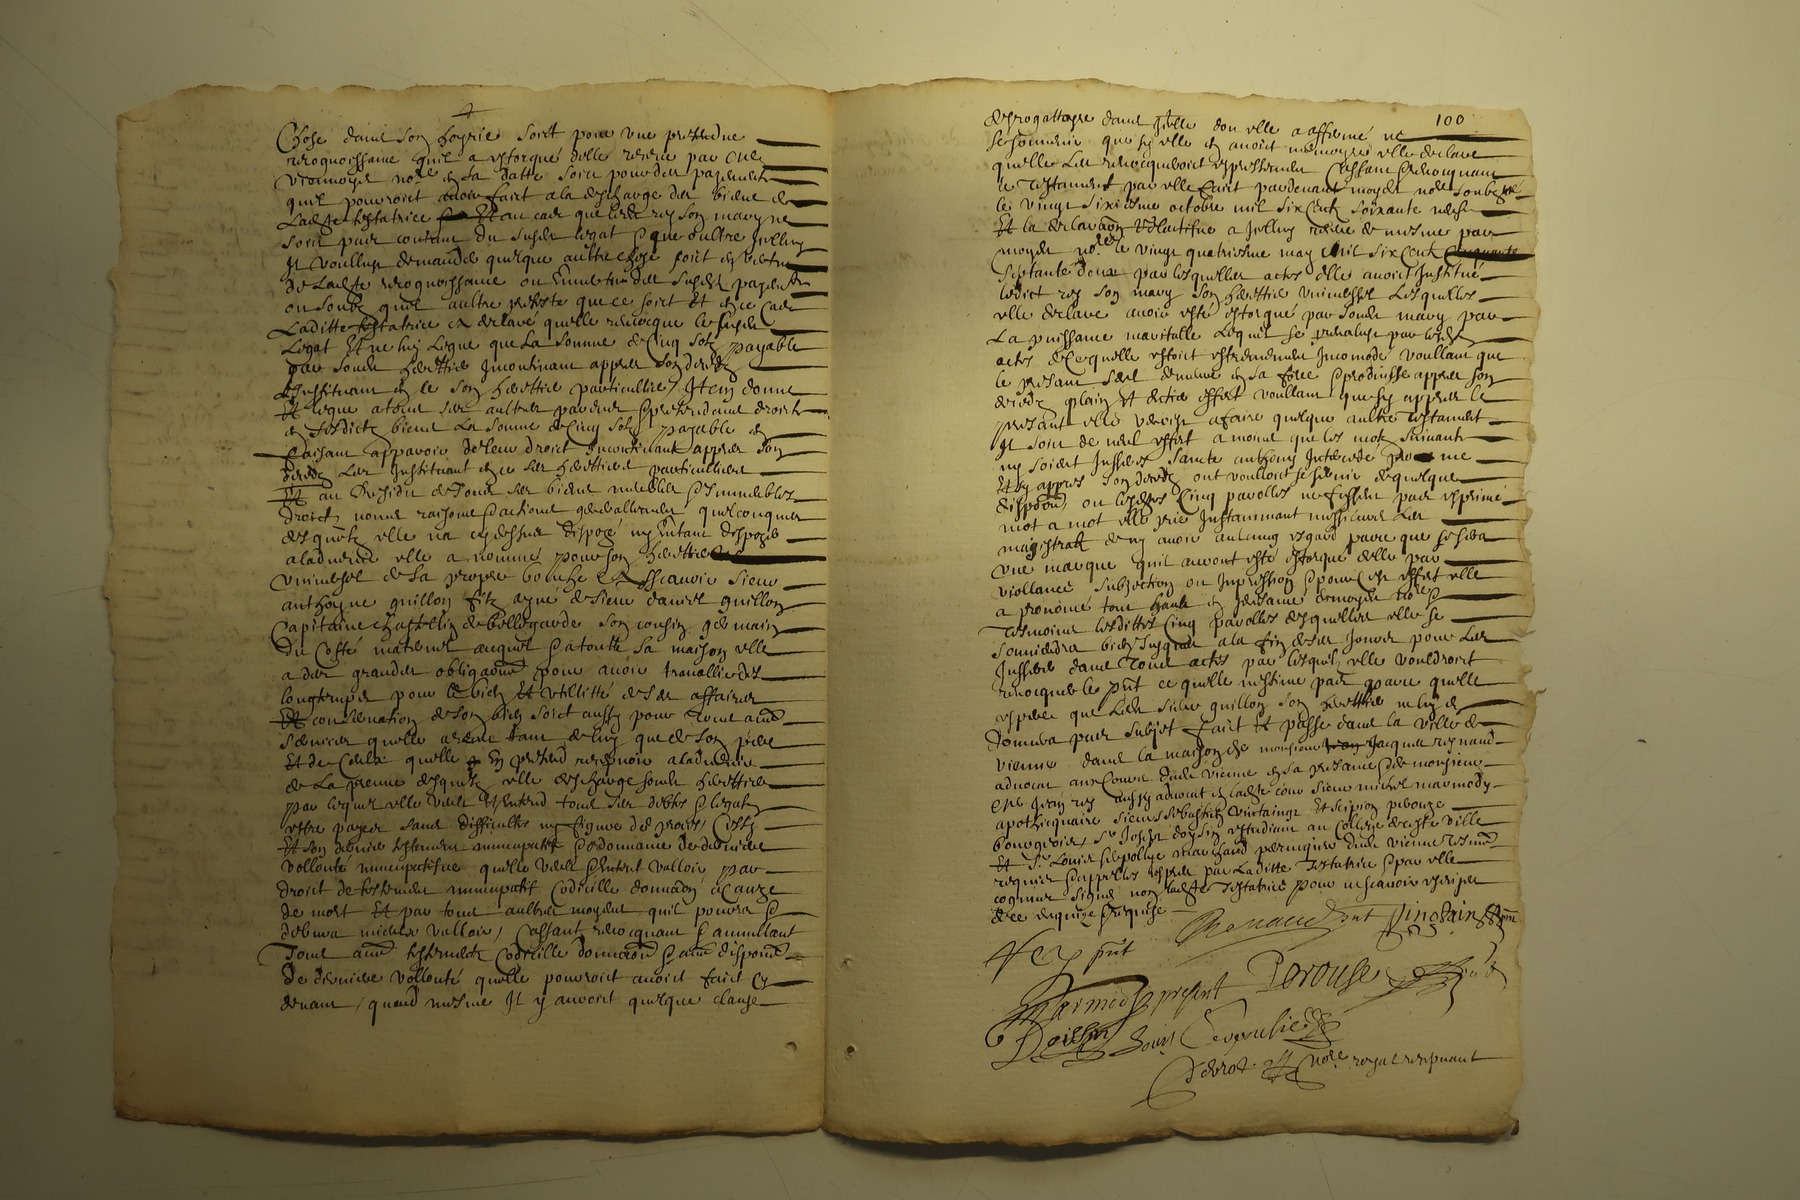 Chose dans son hoyrie soict pour une pretendue
recognoissance quil a extorqué delle receue par me
vion moyen nore en sa datte soict pour des payements
quil pourroit avoir faict a la descharge des biens de
Ladte testatrice Et au cas que ledit rey son mary ne
soict pas contant du susdit legat & que oultre Icelluy
Il voullust demander quelque aultre chose soict en vertu
de Ladte recognoissance ou Ensuitte des susdits payements
ou soubz quel aultre pretexte que ce soict Et en ce Cas
Laditte testatrice a declaré quelle revocque le susdit
Legat Et ne luy Legue que La somme de Cinq solz payable
par sondit herittier Incontinant appres son deces
Linstituant en ce son herittier particullier / Item donne
Et legue a tous ses aultres parents & pretendants droicts
en sesdicts biens La somme de Cinq solz payable en
faisant apparoir de leur droict Incontinant appres son
deces Les Instituant en ce ses herittiers particulliers
Et au Residu de tous ses biens meubles & Immeubles
droicts noms raisons & actions generallement quelconques
desquels elle na cy dessus disposé ny Entant disposer
a ladvenir elle a nommé pour son herittier
universel de sa propre bouche Scavoir sieur
anthoyne guillon filz ayné de sieur daniel guillon
Capitaine chastelin de bellegarde son cousin germain
du Costé maternel auquel & a toutte sa maison elle
a des grandes obligaons pour avoir travallie des
longtemps pour le bien Et utillitté de ses affaires
Et conservation de son bien soict aussy pour tous aues
services quelle a receu tant de luy que de son pere
Et de Ceux quelle en pretend recepvoir a ladvenir
de La preuve desquels elle descharge sondit herittier
par lequel elle veut & Entend tous ses debtes & legats
estre payes sans difficultes ny figure de proces / Cest
Et son dernier testement nuncupatif & ordonnance de derniere
vollonté nuncupatifve quelle veut & Entent valloir par
droict de testement nuncupatif Codicille donnaon a Cauze
de mort Et par tous aultres moyens quil pourra &
debvra mieux valloir / Cassant revocquant & annullant
Tous aues testements Codicille donnaons & aues disposons
de derniere vollonté quelle pourroit avoir faict cy
devant / quand mesme Il y auroit quelque clause
100
derogattoyre dans Icelle don elle a affirmé ne
se souvenir que sy elle en avoit memoyre elle declare
quelle Les revocqueroit expressement Cassant & revocquant
le Testament par elle faict pardevant moydit nore soubzne
le vingt sixiesme octobre mil six Centz soixante
Et la declaraon a Icelluy receue de mesme par
moydit nore le vingt quatriesme may mil six Centz
Septante deux par lesquelles actes elle avoict Institué
ledict rey son mary son herittier universel Lesquelles
elle declare avoir esté extorqué par sondit mary par
La puissance maritalle Lequel se prevalust par lesdts
actes de ce quelle estoict extremement Incomodé voullant que
le presant seul demeure en sa force & produisse appres son
deces plain Et entier effect voullant que sy appres le
presant elle venoist a faire quelque aultre testament
Il soict de nul effect a moins que les motz suivants
ny soient Inseres Sancte anthony Intercede pro me
Et sy appres son deces ont voulloit se servir de quelque
disposon ou lesdites Cinq parolles ne fussent pas exprimé
mot a mot elle prie Instamment messieurs Les
magistratz de ny avoir aulcung esgard parce que se sera
une marque quil auront esté extorqué delle par
viollance subjection ou Impression & pour Cest effect elle
a prononcé tout hault en presance de moydit nore &
Tesmoins lesdittes Cinq parolles desquelles elle se
souviendra bien Jusques a la fin de ses Jours pour Les
Inserer dans Tous actes par lesquels elle vouldroit
revocquer le pnt ce quelle nestime pas parce quelle
espere que Ledit sieur guillon son herittier ne luy en
donnera pas subjet faict Et passé dans la ville de
vienne dans la maison de monsieur Jacques reynaud
advocat aux Cours dudit vienne en sa presance & de monsieur
me Jean rey aussy advocat en ladte cour sieur michel marmody
apothicquaire sieurs sebastien vinctaings Et scipion perouze
bourgeois, sr Joseph doysin estudiant au College de ceste ville
Et sr Louis Cherpollye marchand perruquier dudit vienne Tesmoins
requis & appelles expres par Laditte Testatrice & par elle
cognus signé non ladte Testatrice pour ne scavoir escripre
de ce enquise & requise
Renaud pnt Vinctain pnt
Rey pnt
Marmody present Perouse
Doissin Louis Cherpolie
Perrot nore royal recepvant